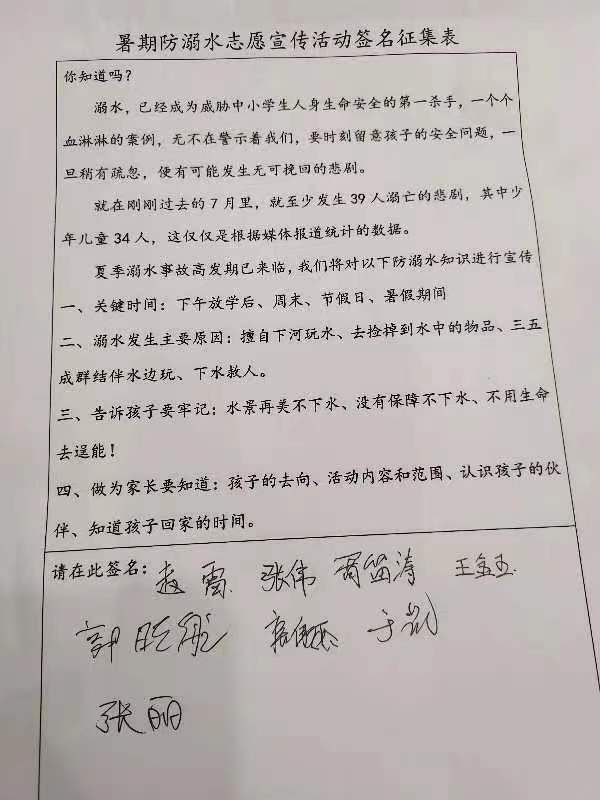 暑期防溺水志愿宣传活动签名征集表
你知道吗？
溺水，已经成为威胁中小学生人身生命安全的第一杀手，一个个
血淋淋的案例，无不在警示着我们，要时刻留意孩子的安全问题，一
旦稍有疏忽，便有可能发生无可挽回的悲剧。
就在刚刚过去的7月里，就至少发生39人溺亡的悲剧，其中少
年儿童34人，这仅仅是根据媒体报道统计的数据。
夏季溺水事故高发期已来临，我们将对以下防溺水知识进行宣传
一、关键时间：下午放学后、周末、节假日、暑假期间
二、溺水发生主要原因：擅自下河玩水、去捡掉到水中的物品、三五
成群结伴水边玩、下水救人。
三、告诉孩子要牢记：水景再美不下水、没有保障不下水、不用生命
去逞能！
四、做为家长要知道：孩子的去向、活动内容和范围、认识孩子的伙
伴、知道孩子回家的时间。
请在此签名：赵霞 张伟 王金玉
郭晓航 于凯
张丽